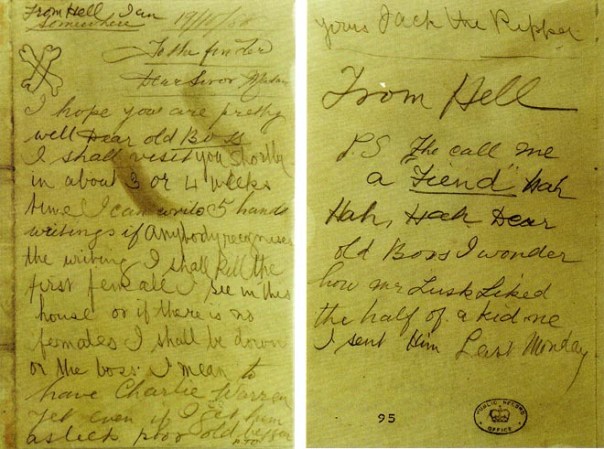 From Hell I am
somewhere 19/10/88
To the finder
Dear Sir or Madam
I hope you are pretty
well Dear old Boss
I shall visit you shortly
in about 3 or 4 weeks
time I can write 5 hand
writings if anybody recognises
the writing I shall kill the
first female I see in this
house or if there is no
females I shall be down
on the boss. I mean to
have Charlie Warren
yet even if I get him
asleep poor old beggar
yours Jack the Ripper
From Hell
P.S The call me
a "Fiend" Hah
Hah, Hah Dear
old Boss I wonder
how mr Lusk Liked
the half of a kidne
I sent him Last Monday
95
PUBLIC RECORD
OFFICE